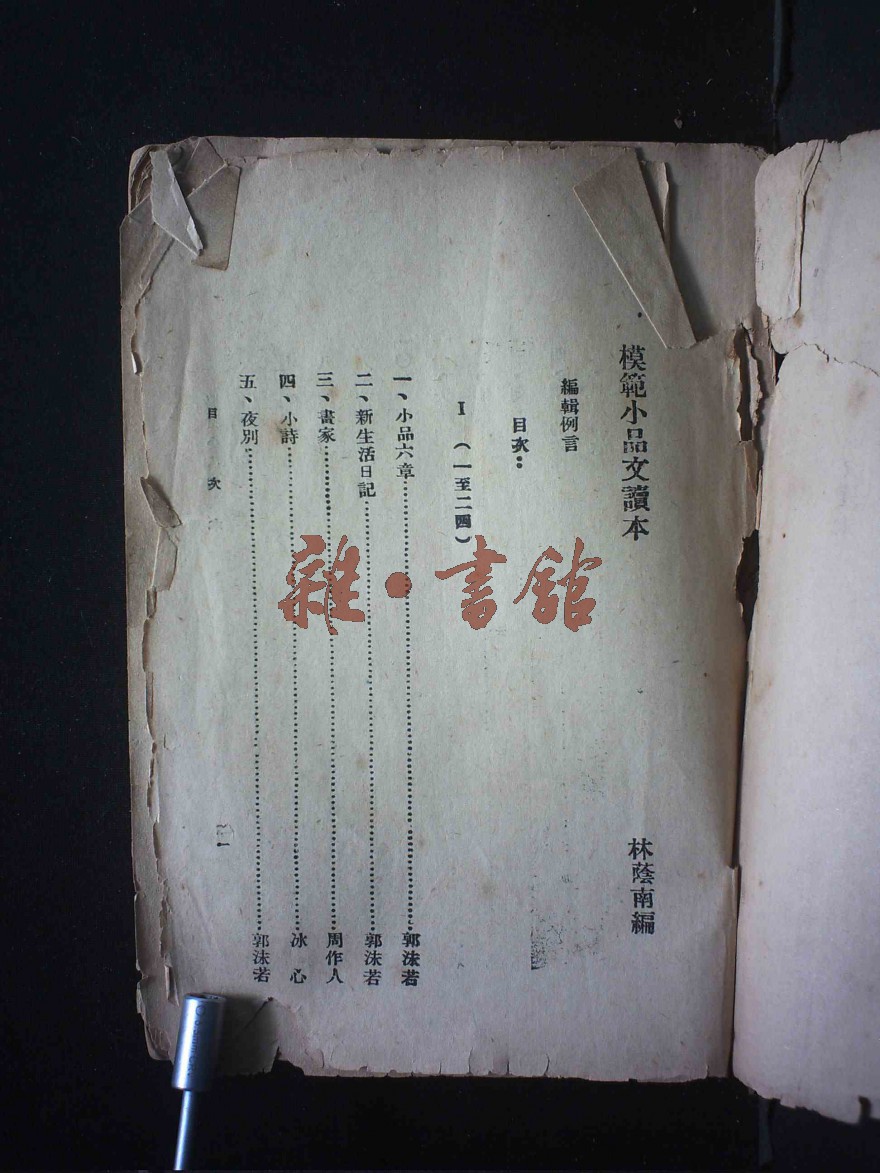 模範小品文讀本
林蔭南編
編輯例言
目次：
I （一至二四）
一、小品六章…………郭沫若
二、新生活日記…………郭沫若
三、畫家…………周作人
四、小詩…………冰心
五、夜別…………郭沫若
目次
一
雜·書館